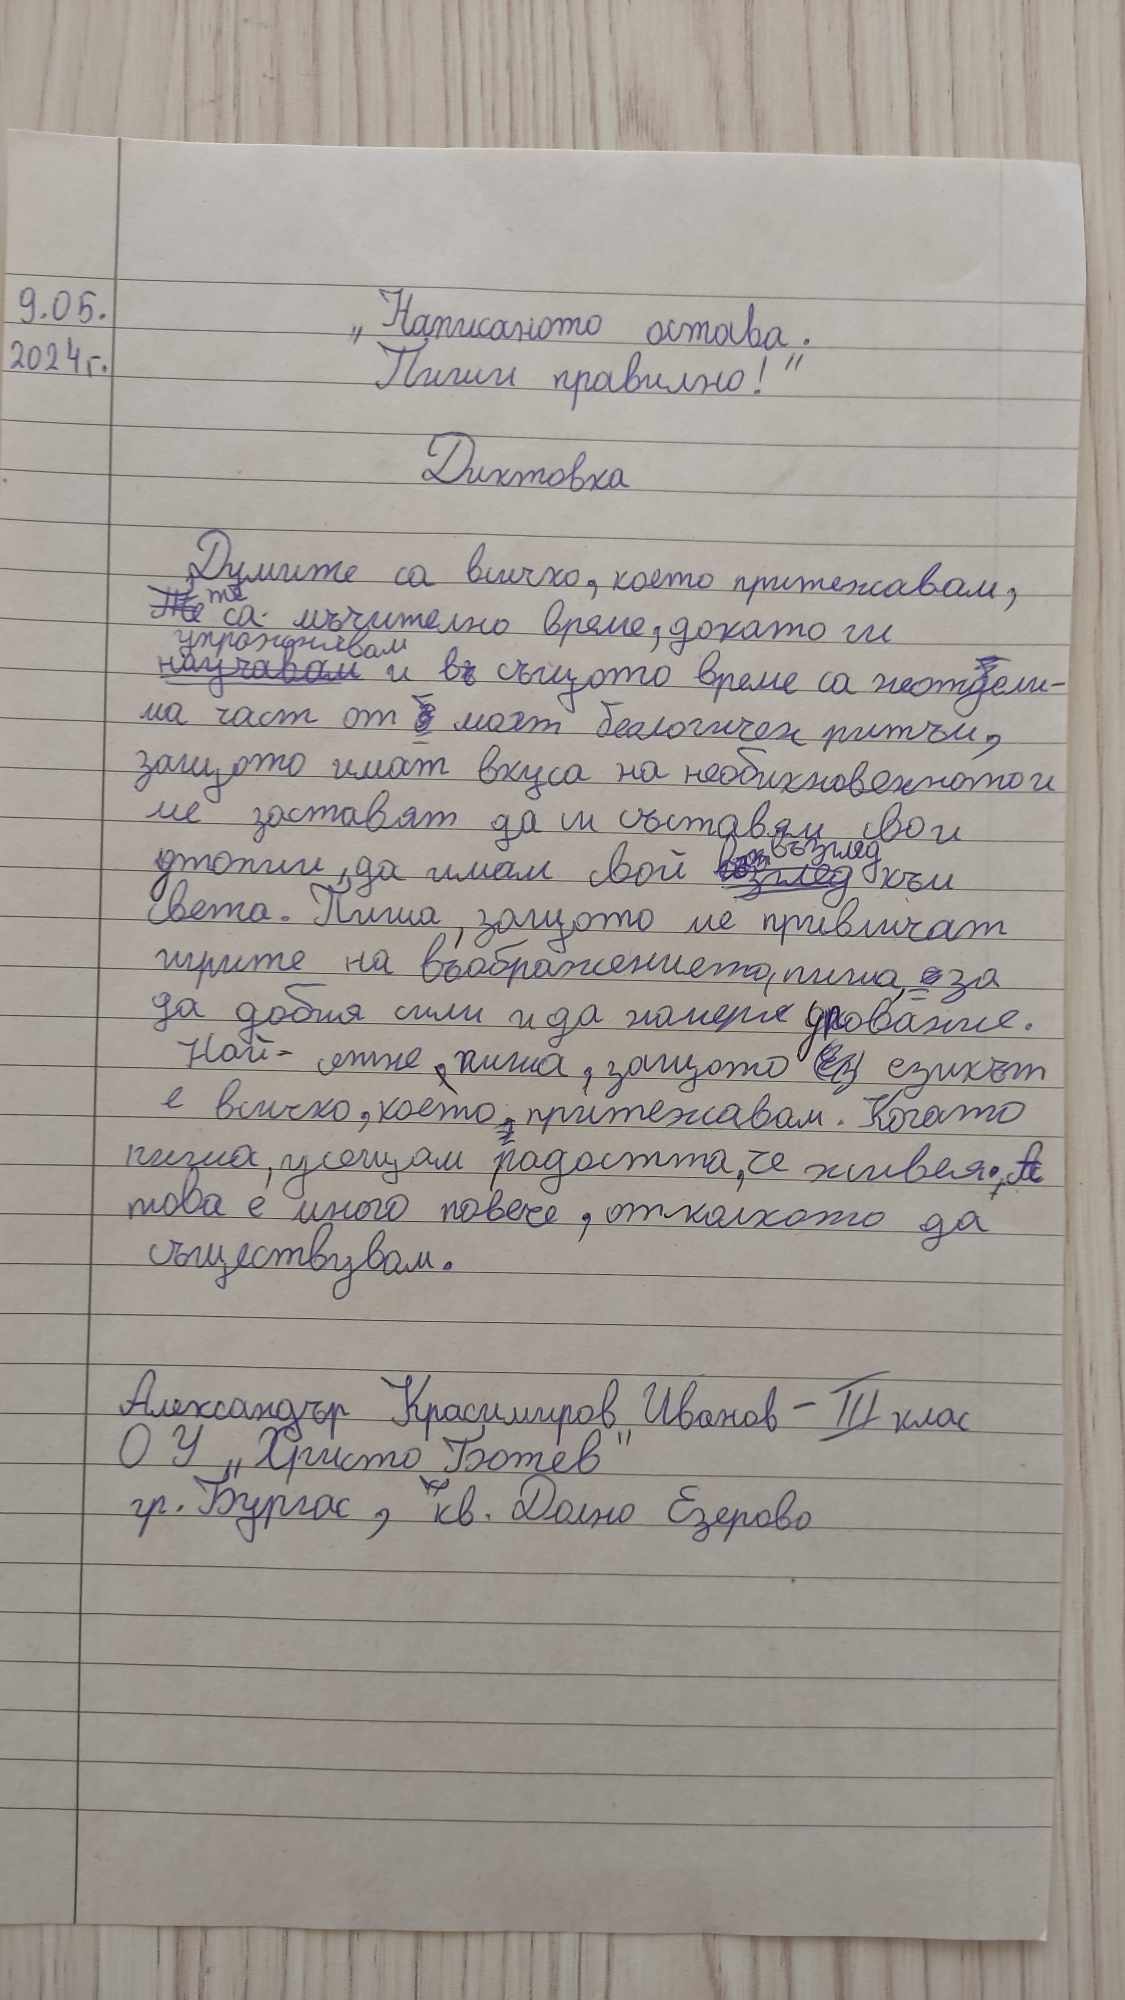 9.05.
2024г.
„Написаното остава.
Пиши правилно!"
Диктовка
Думите са всичко, което притежавам,
те са мъчително време, докато ги
упражнявам
научавам и в същото време са неотдели-
ма част от моят биологичен ритъм,
защото имат вкуса на необикновеното и
ме заставят да си съставям свои
утопии, да имам свой възглед към
света. Пиша, защото ме привличат
игрите на въображението, пиша, за
да добия сили и да намеря упование.
Най- пиша, защото езикът
е всичко, което притежавам. Когато
пиша, усещам радостта, че живея, А
това е много повече, отколкото да
съществувам.
Александър Красимиров Иванов - III клас
ОУ „Христо Ботев"
гр. Бургас, кв. Долно Езерово